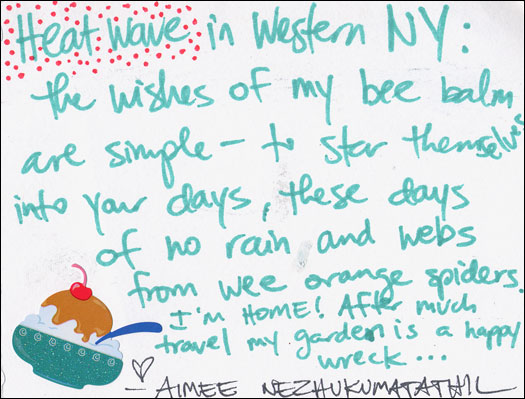 Heat Wave in Western NY:
the wishes of my bee balm
are simple — to star themselves
into your days, these days
of no rain and webs
from wee orange spiders.
I'm HOME! After much
travel my garden is a happy
wreck...
— AIMEE NEZHUKUMATATHIL